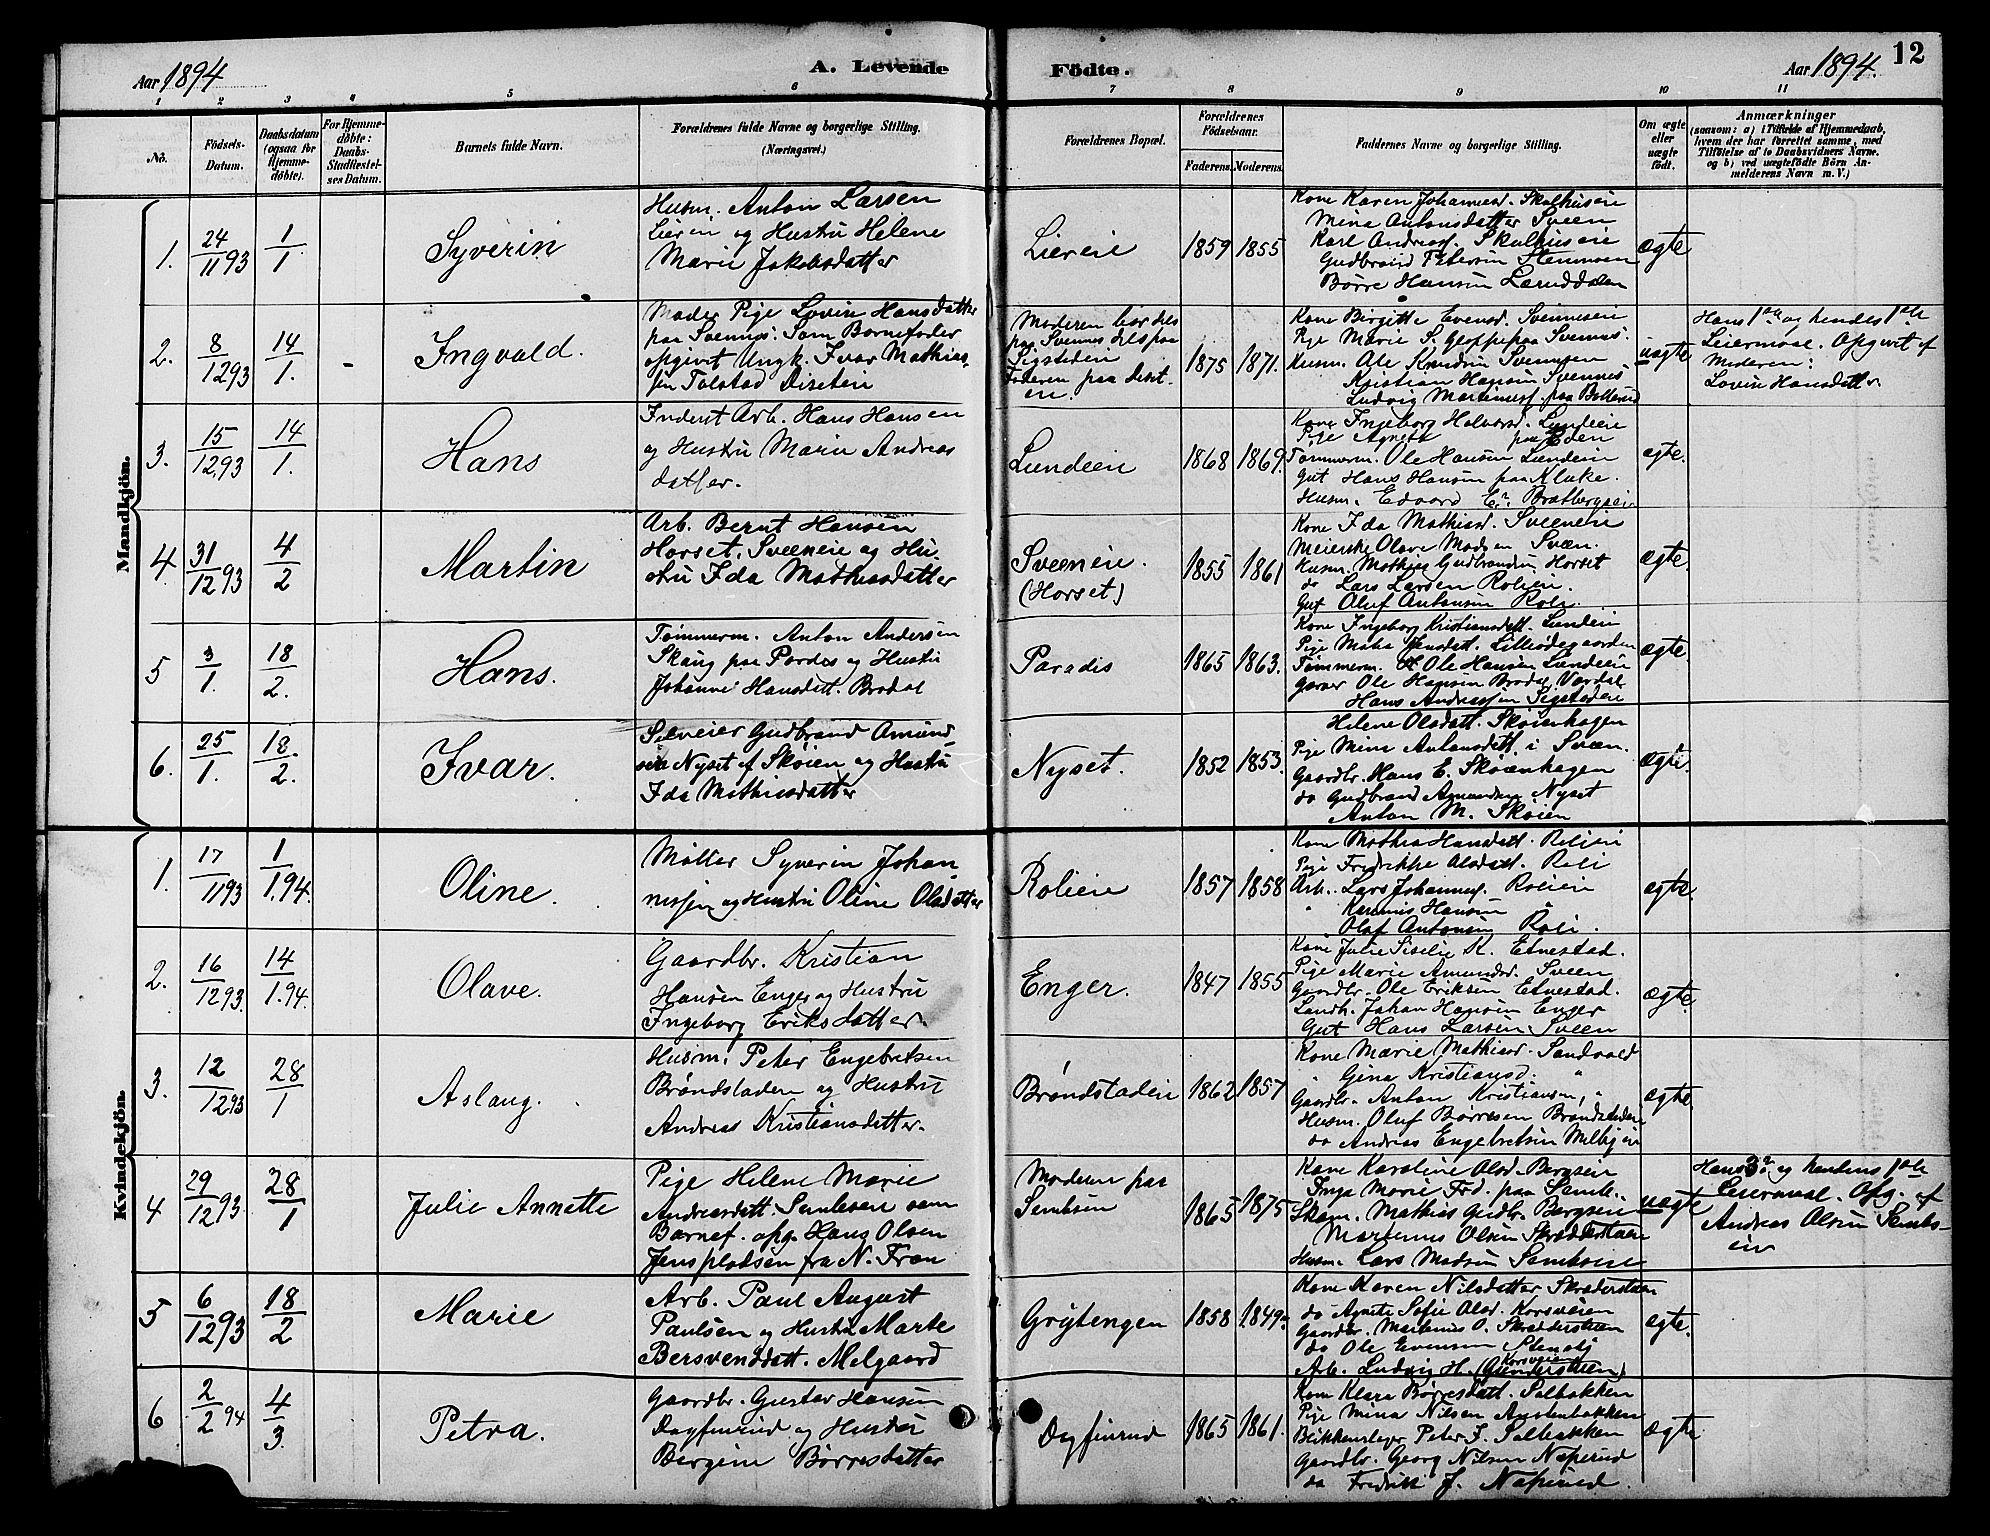 Aar 1894
A. Levende
Födte.
Aar 1894.
12
1 2 3 4 5 6 7 8 9 10 11
No.
Födsels-
Datum.
Daabsdatum
(ogsaa for
Hjemme-
döbte).
For Hjemme-
döbte:
Daabs-
Stadfæstel-
ses Datum.
Barnets fulde Navn.
Forældrenes fulde Navne og borgerlige Stilling.
(Næringsvei.)
Forældrenes Bopæl.
Forældrenes
Födselsaar.
Faderens. Moderens.
Faddernes Navne og borgerlige Stilling.
Om ægte
eller
uægte
födt.
Anmærkninger
(saasom: a) i Tilfælde af Hjemmedaab,
hvem der har forrettet samme, med
Tilföielse af to Daabsvidners Navne,
og b) ved uægtefödte Börn An-
melderens Navn m. V.)
Mandkjön.
1.
24/11 93
1/1.
Syverin
Husm. Anton Larsen
Lieren og Hustru Helene
Marie Jakobsdatter
Liereie
1859 1855
Kone Karen Johannesd. Skolhuseie
Mina Antonsdatter Sveen
Karl Andreass. Skolhuseie
Gudbrand Petersen Stenmoen
Børre Hansen Læruddalen
ægte
2.
8/12 93
14/1.
-
Ingvald.
Moder Pige Lovise Hansdatter
paa Svennes. Som Barnefader
opgivet Ungk. Ivar Mathias-
sen Tolstad Diseteie
Moderen har hos
paa Svennes
Sigstaden
Faderen paa Diset-
en.
1875 1871.
Kone Birgitte Evensd. Svenneseie
Pige Marie S. Gloppe paa Svennes.
Husm. Ole Knudsen Svennesen
Kristian Hansen Svennes
Ludvig Martinuss. paa Bollerud
uægte
Hans 1ste og hendes 1ste
Leiermaal. Opgivet af
Moderen:
Lovise Hansdatter
3.
15/12 93
14/1.
Hans
Inderst Arb. Hans Hansen
og Hustru Marie Andreas
datter.
Lundeie
1868 1869.
Kone Ingeborg Halvorsd. Lundeie
Pige Agnete paa Eden
Tømmerm. Ole Hansen Lundeie
Gut Hans Hansen paa Kluke.
Husm. Edvard En. Bratbergseie
ægte.
4.
31/12 93
4/2
Martin
Arb. Bernt Hansen
Horset. Sveeneie og Hu-
stru Ida Mathisdatter
Sveeneie.
(Horset)
1855 1861
Kone Ida Mathisd. Sveeneie
Meierske Olave Madsen Svæn.
Husm. Mathias Gudbrandsen Horset
do Lars Larsen Rolieie.
Gut Oluf Antonsen Roli.
ægte.
5
3/1.
18/2.
Hans.
Tømmerm. Anton Andersen
Skaug paa Pardes og Hustru
Johanne Hansdatt. Brodal
Paradis
1865 1863.
Kone Ingeborg Kristiansdatt. Lundeie
Pige Mathea Jensdatt. Lilleødegaarden
Tømmerm. Ole Hansen Lundeie
Garver Ole Hansen Brodal, Vardal
Hans Andreassen Sigstadeie
ægte.
6.
25/1.
18/2.
Ivar.
Selveier Gudbrand Amund-
sen Nyset af Skøien og Hustru
Ida Mathiasdatter
Nyset.
1852 1853.
Helene Olsdatt. Skøienhagen
Pige Mina Antonsdatt. i Svæn.
Gaardbr. Hans E. Skøienhagen
do Gudbrand Amundsen Nyset
Anton M. Skøien
ægte.
Kvindekjön.
1.
17/11 93
1/1. 94.
Oline.
Møller Syverin Johan-
nessen og Hustru Oline Olsdatter
Rolieie
1857 1858
Kone Mathea Hansdatt. Rolieie
Pige Fredrikke Olsdatt. Roli
Arb. Lars Johanness. Rolieie
" Karenius Hansen "
Olaf Antonsen Roli.
ægte
2.
16/12 93.
14/1. 94.
Olave.
Gaardbr. Kristian
Hansen Enger og Hustru
Ingeborg Eriksdatter.
Enger.
1847 1855
Kone Julie Siselie K. Etnestad.
Pige Marie Amundsd. Sveen
Gaardbr. Ole Eriksen Etnestad.
Landh. Johan Hansen Enger
Gut Hans Larsen Sveen
ægte.
3.
12/12 93
28/1
Aslaug.
Husm. Peter Engebretsen
Brøndstaden og Hustru
Andrea Kristiansdatter.
Brøndstadeie
1862 1857
Kone Marie Mathisd. Sandvold
" Gina Kristiansd. "
Gaardbr. Anton Kristiansen, "
Husm. Oluf Børresen Brøndstadeie
do Andreas Engebretsen Melbyeie
ægte.
4
29/12 93
28/1
Julie Annette
Pige Helene Marie
Andreasdatt. Sembseie som
Barnef. opg. Hans Olsen
Jensplassen fra N. Fron
Moderen paa
Sembseie
1865 1875
Kone Karoline Olsd. Bergseie
Inga Marie Frd. paa Semb.
Skom. Mathias Gudbr. Bergseie
Martenus Olsen Skrædderstuen
Husm. Lars Madsen Sembseie
uægte
Hans 3die og hendes 1ste
Leiermaal. Opg. af
Andreas Olsen Sembs-
eie
5
6/12 93
18/2
Marie
Arb. Paul August
Paulsen og Hustru Marte
Bersvendsdatt. Melgaard
Grytengen
1858 1849.
Kone Maren Nilsdatter Skræderstuen
do Agnete Sofie Olsd. Korsveien
Gaardbr. Martenus O. Skrædderstuen
do Ole Evensen Stenby
Arb. Ludvig H. Korsveie
ægte.
6
2/2 94
4/3.
Petra.
Gaardbr. Gustav Hansen
Dagfinrud og Hustru
Bergine Børresdatter
Dagfinrud
1865 1861.
Kone Klara Børresdatt. Solbakken
Pige Mina Nilsen Austenbakken
Blikkenslager Peter J. Solbakken
Gaardbr. Georg Nilsen Næperud
do Fredrik J. Næperud.
ægte